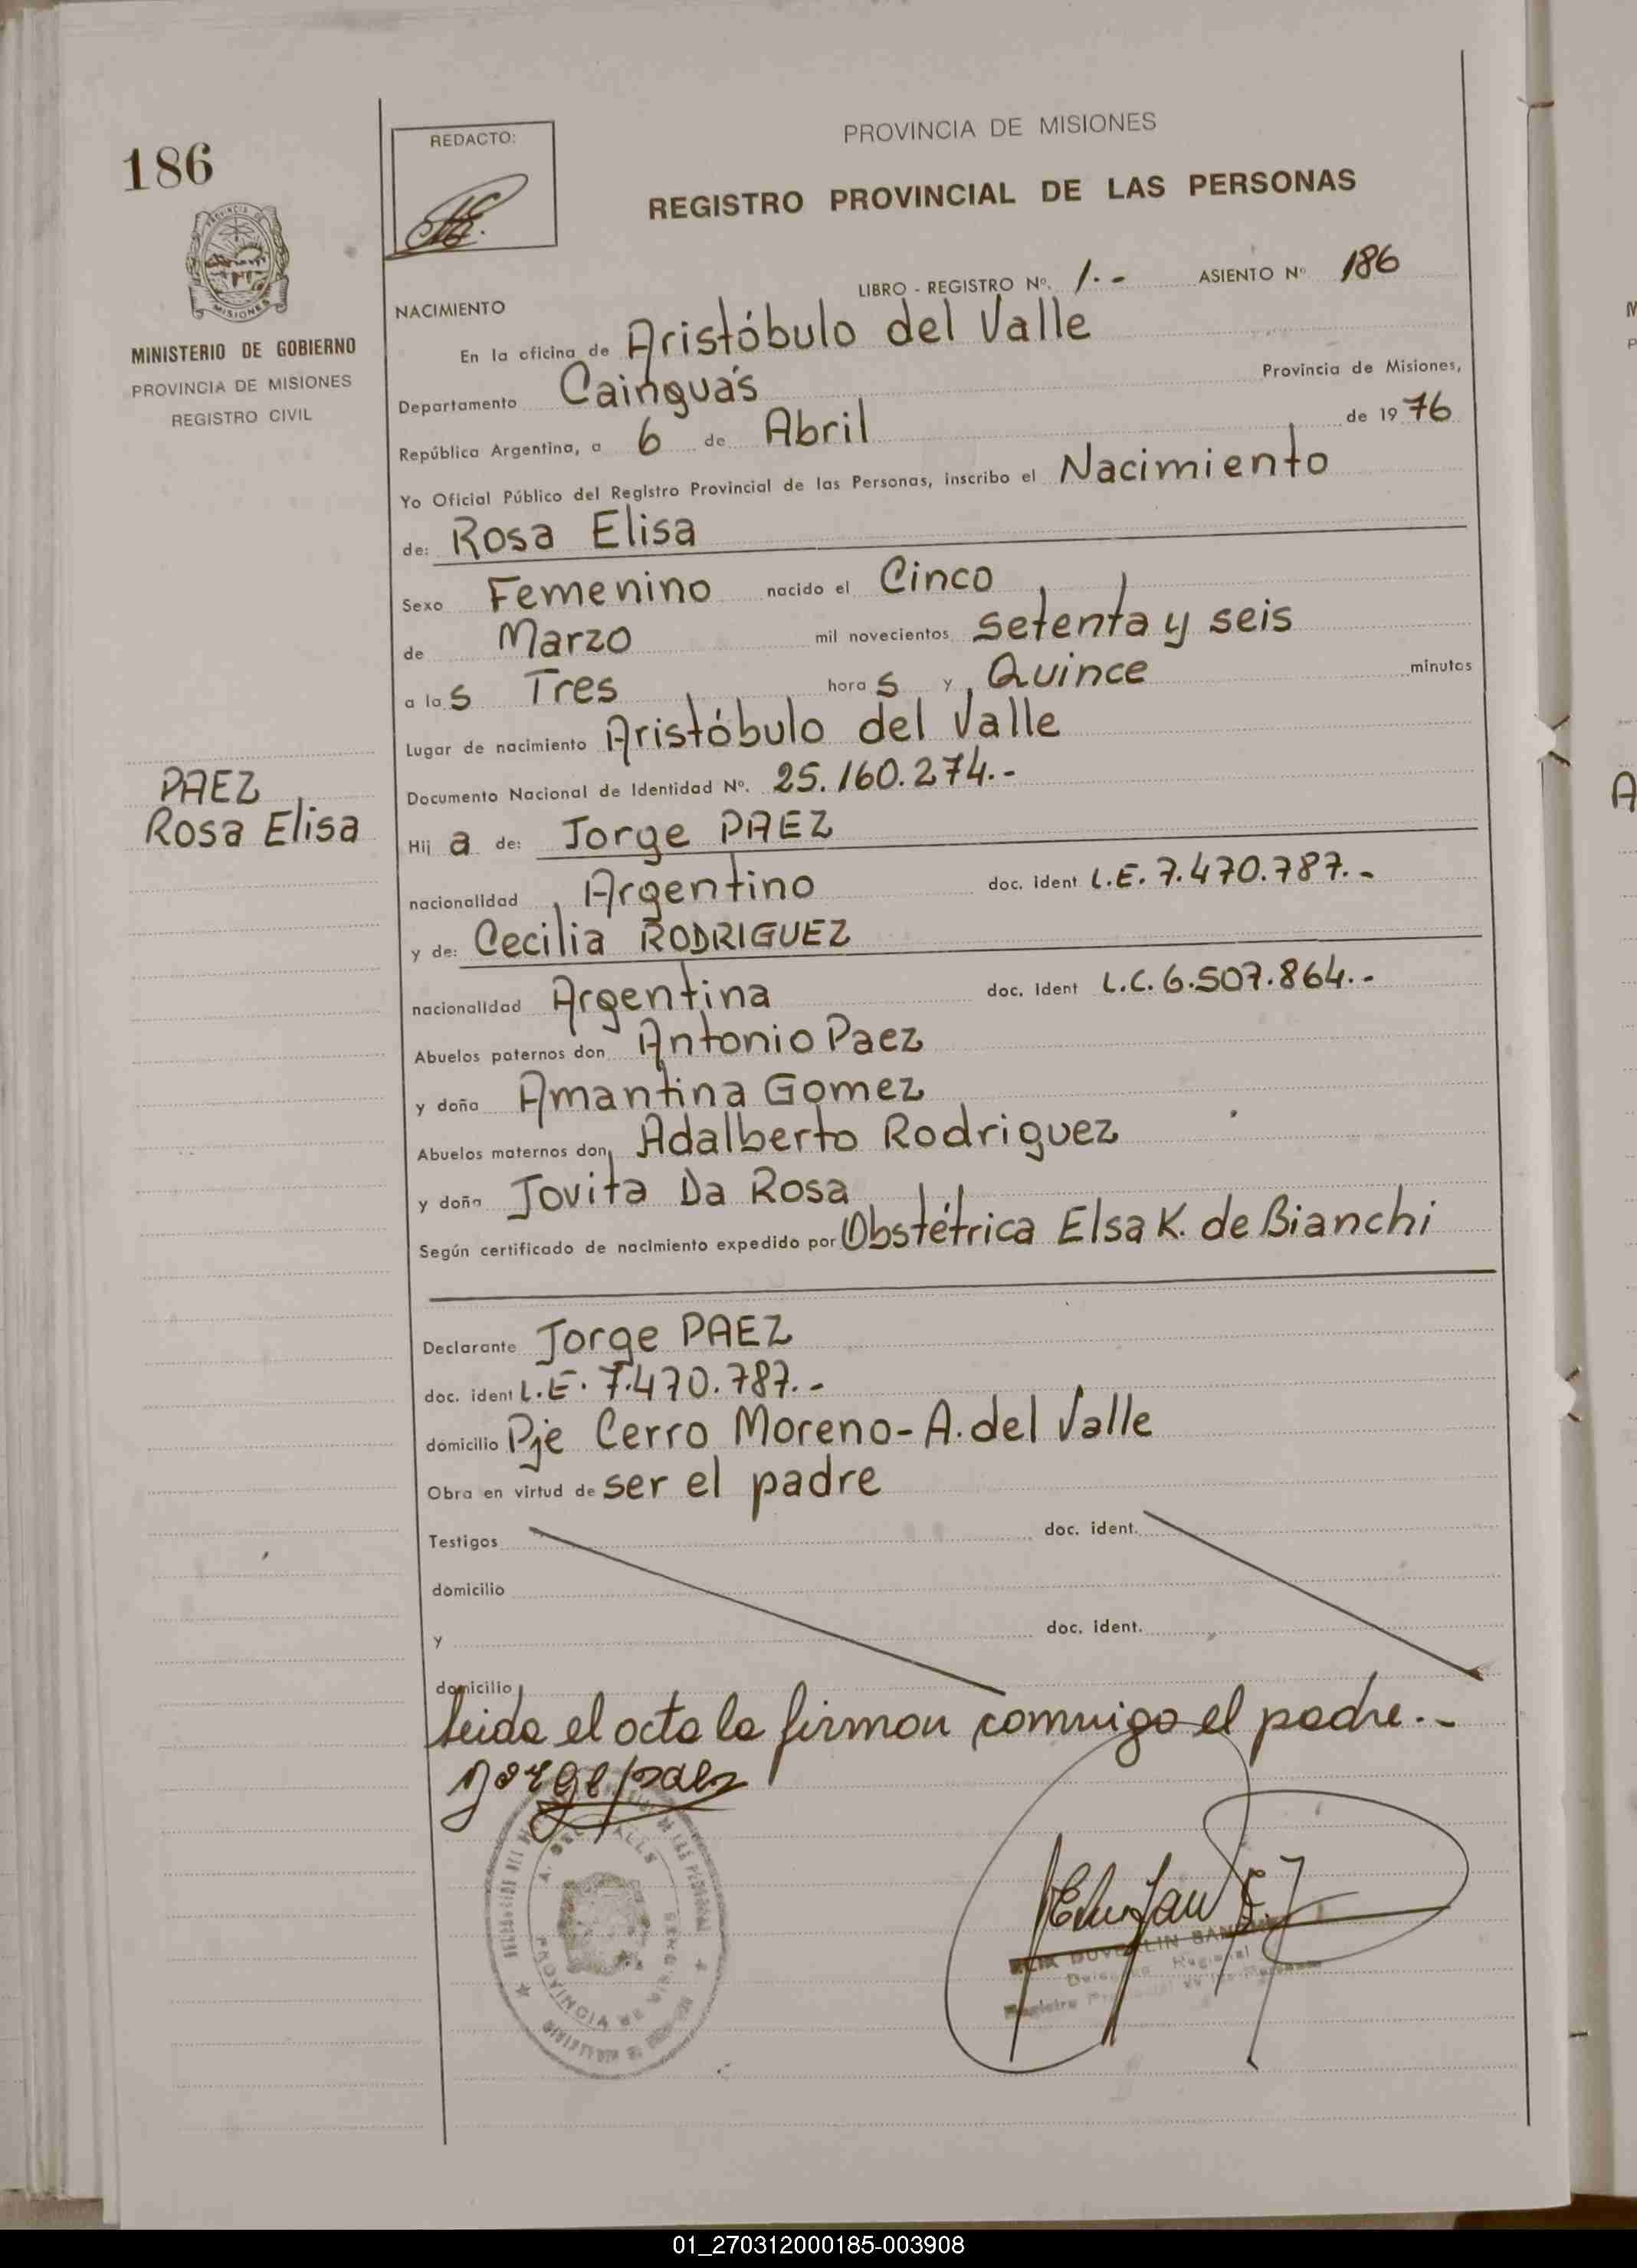 186
REDACTO:
PROVINCIA DE MISIONES
REGISTRO PROVINCIAL DE LAS PERSONAS
PROVINCIA DE
MISIONES
MINISTERIO DE GOBIERNO
PROVINCIA DE MISIONES
REGISTRO CIVIL
LIBRO - REGISTRO Nº. 1.- ASIENTO Nº 186
NACIMIENTO
En la oficina de Aristóbulo del Valle
Departamento Cainguás Provincia de Misiones,
República Argentina, a 6 de Abril de 1976
Yo Oficial Público del Registro Provincial de las Personas, inscribo el Nacimiento
de: Rosa Elisa
Sexo Femenino nacido el Cinco
de Marzo mil novecientos setenta y seis
a las Tres horas y Quince minutos
Lugar de nacimiento Aristóbulo del Valle
Documento Nacional de Identidad Nº. 25.160.274.-
PAEZ
Rosa Elisa
Hija de: Jorge PAEZ
nacionalidad Argentino doc. ident L.E. 7.470.787.-
y de: Cecilia RODRIGUEZ
nacionalidad Argentina doc. ident L.C. 6.507.864.-
Abuelos paternos don Antonio Paez
y doña Amantina Gomez
Abuelos maternos don Adalberto Rodriguez
y doña Jovita Da Rosa
Según certificado de nacimiento expedido por Obstétrica Elsa K. de Bianchi
Declarante Jorge PAEZ
doc. ident L.E. 7.470.787.-
domicilio Pje Cerro Moreno - A. del Valle
Obra en virtud de ser el padre
Testigos doc. ident.
domicilio
y doc. ident.
domicilio
Leida el acta la firman conmigo el padre.-
Jorge Paez
A. DEL VALLE
PROVINCIA DE
01_270312000185-003908